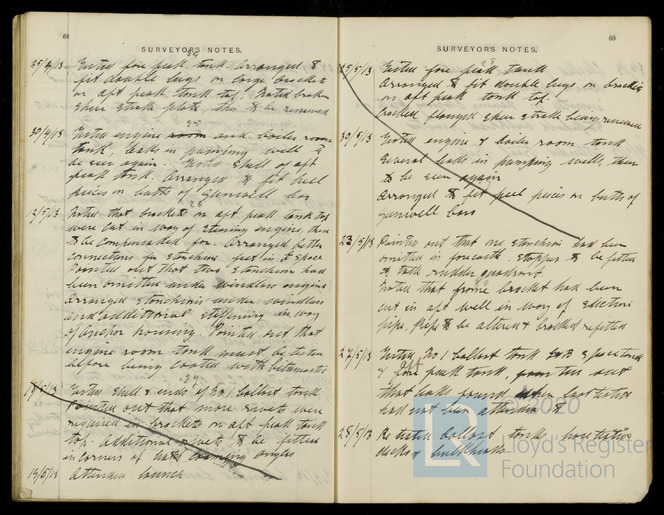 68
SURVEYOR'S NOTES.
29/4/13 Tested fore peak tank. Arranged to
fit double lugs on bracket
on aft peak tank top. Noted broken
sheer strake plate, this to be renewed
30/4/13 Tested engine room and boiler room
tank, leaks in pumping well to
be seen again. Noted shell of aft
peak tank. Arranged to fit
pieces on butts of gunwell bar
13/5/13 Noted that brackets on aft peak tank top
were cut in way of steering engine, these
to be compensated for. Arranged better
connections for stanchions
Pointed out that two stanchions had
been omitted under windlass engine
Arranged stanchions under windlass
and additional stiffening in way
of anchor housing. Pointed out that
engine room tank must be tested
before being coated with
Tested shell & ends of No 1 ballast tank
Pointed out that more rivets were
required in brackets on aft peak tank
top. Additional rivets to be fitted
in corners of angles
19/5/13 Attended launch
69
SURVEYOR'S NOTES.
29/5/13 Tested fore peak tank
Arranged to fit double lugs on bracket
on aft peak tank top.
flanged sheer strake being renewed
30/5/13 Tested engine & boiler room tank
Several leaks in pumping wells, these
to be seen again
Arranged to fit pieces on butts of
gunwell bars
23/5/13 Pointed out that one stanchion had been
omitted in forecastle. Stopper to be fitted
rudder quadrant.
Noted that bracket had been
cut in aft well in way of
pipe. Pipe to be altered & bracket refitted
27/5/13 Tested No 1 ballast tank
& peak tank, out
that leaks found last tested
had not been attended to
28/5/13 Re tested ballast tank,
decks & bulkheads
LR
© 2020
Lloyd's Register
Foundation